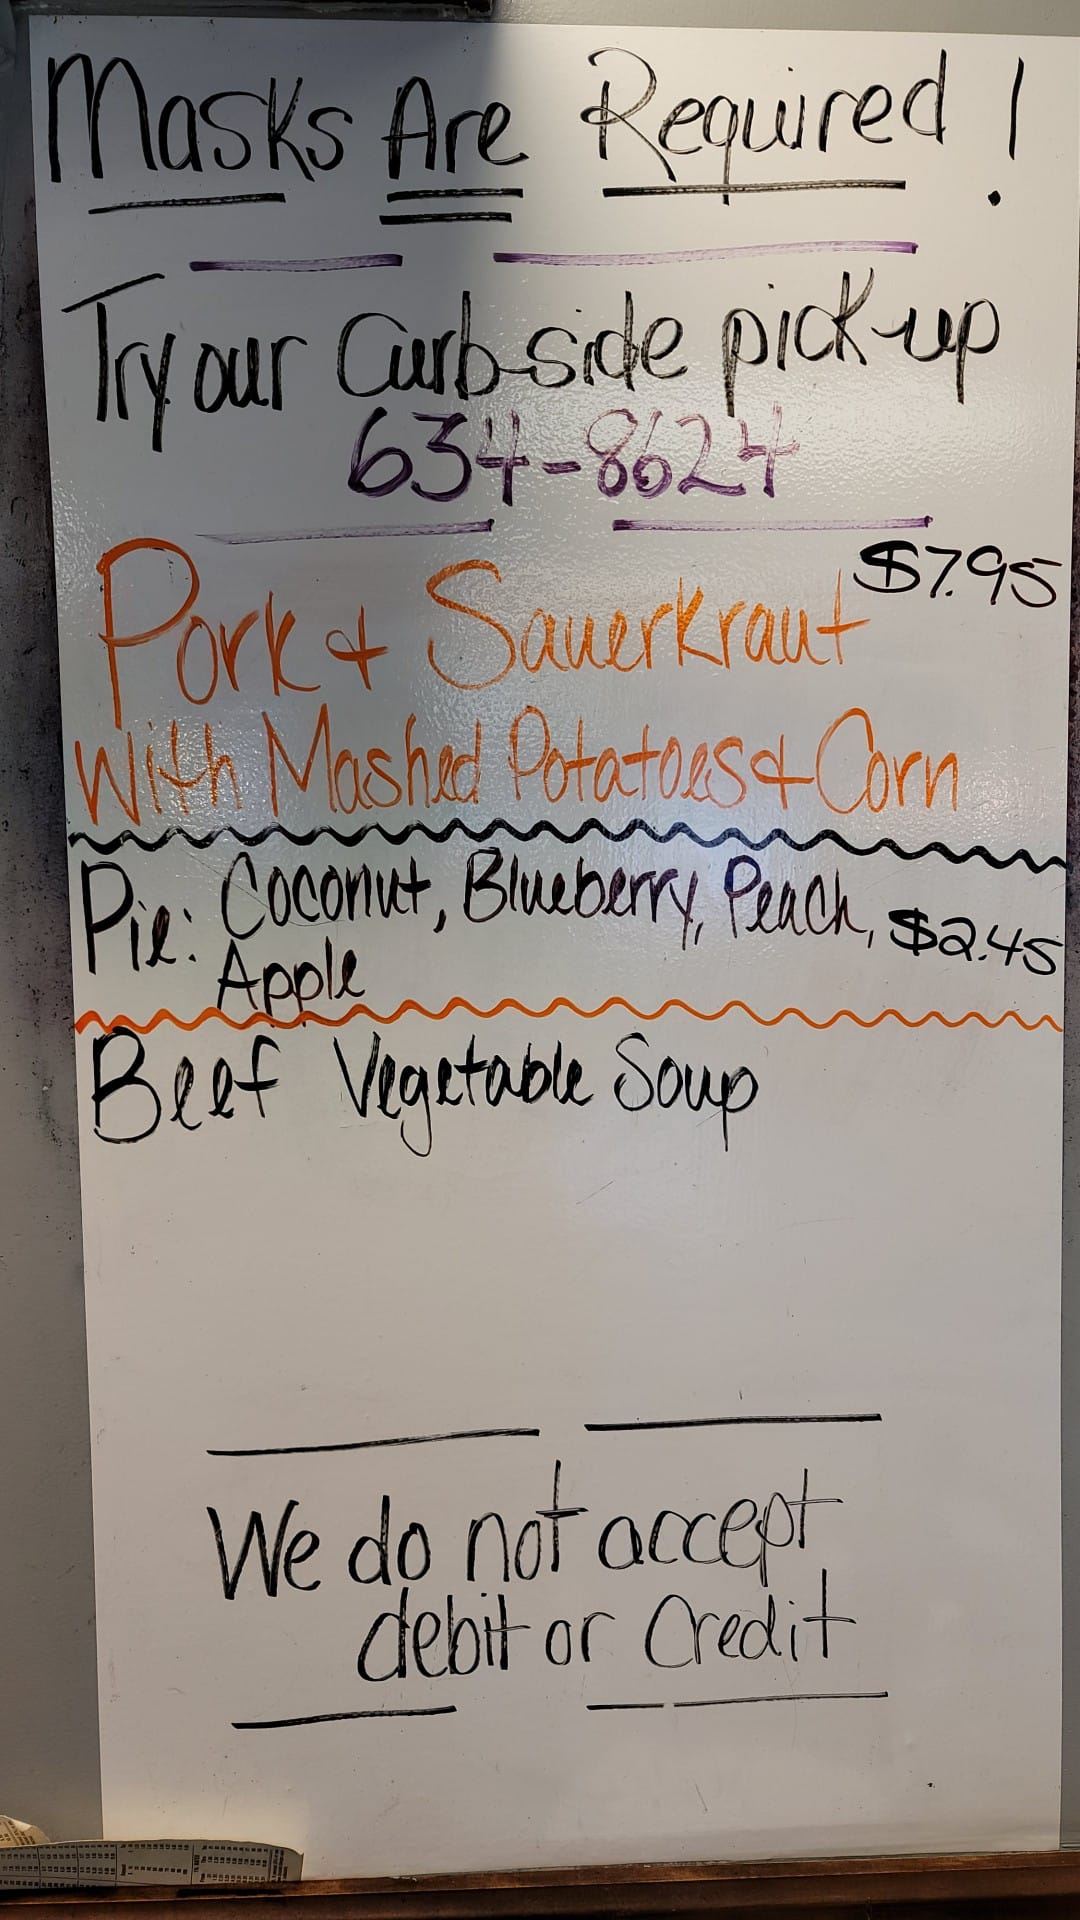 Masks Are Required!
Try our Curb-side pick-up
634-8624
$7.95
Pork & Sauerkraut
With Mashed Potatoes & Corn
Pie: Coconut, Blueberry, Peach, $2.45
Apple
Beef Vegetable Soup
We do not accept
debit or Credit